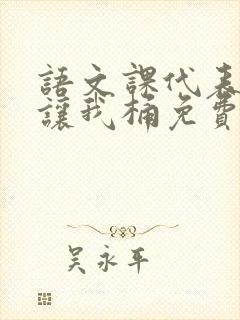 語文課代表
讓我桶免費
吴永平